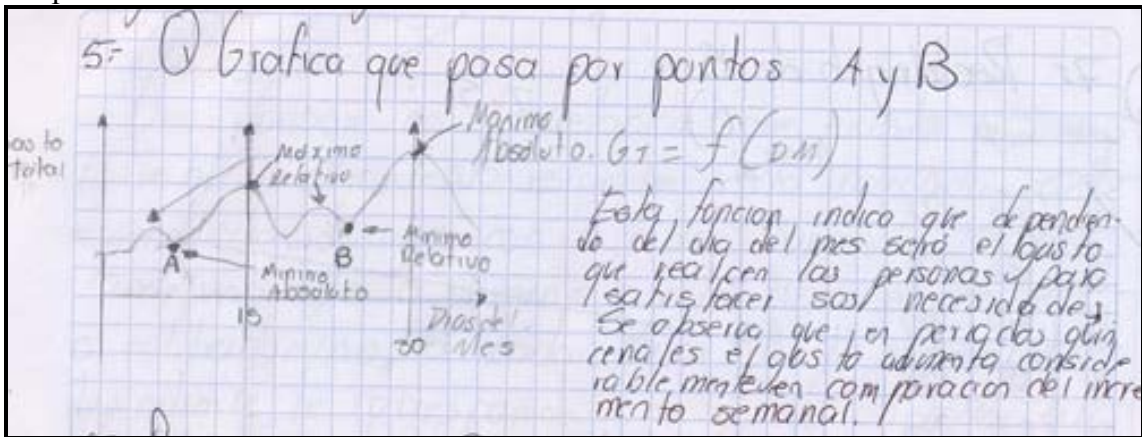 5.- Q Grafica que pasa por pontos A y B
asto
Total
Maximo
Relativo
Monimo
Absoluto. GT = f(DM)
A
Minimo
Absoluto
B
Minimo
Relativo
15
30
Dias del
Mes
Esta foncion indica que dependien-
do del dia del mes será el gasto
que realicen las personas para
satisfacer sus necesidades.
Se observa que en periodos quin
cenales el gasto aumenta conside
rablemente en comparacion del incre
mento semanal.